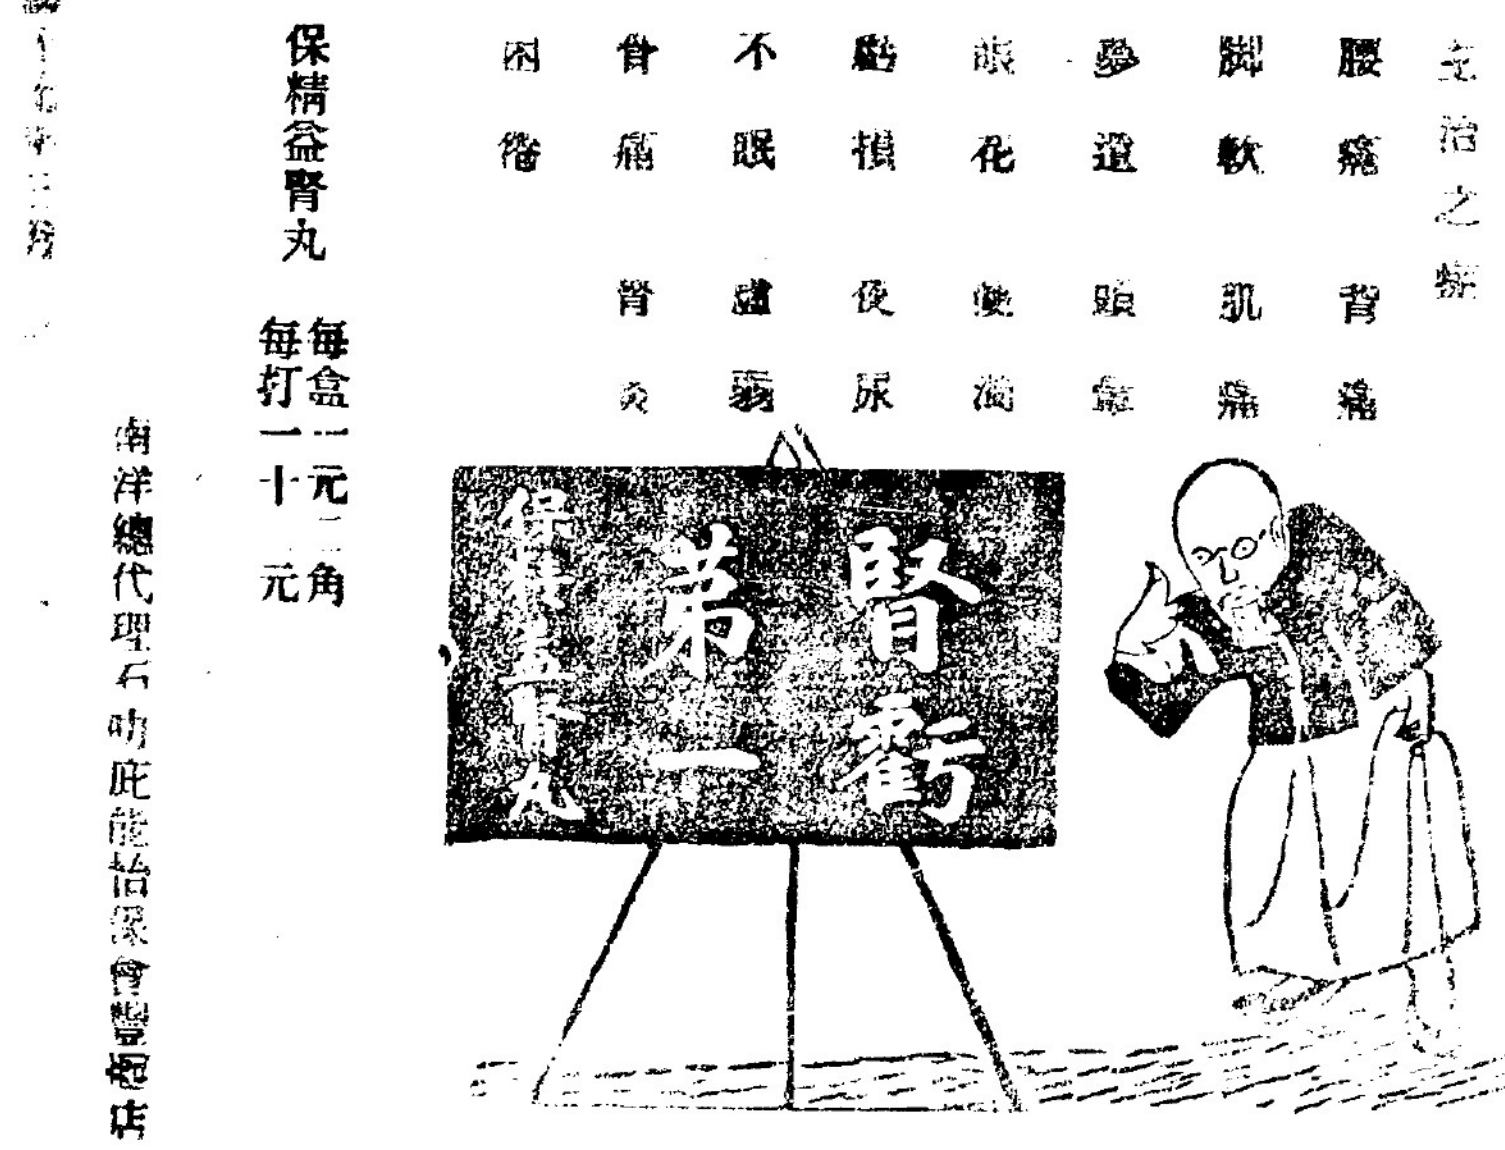 主治之症
腰痛 背痛
脚軟 肌痛
夢遺 頭暈
眼花 便濁
虧損 夜尿
不眠 虛弱
骨痛 腎炎
困倦
腎虧
第一
保精益腎丸
保精益腎丸
每盒一元二角
每打一十二元
南洋總代理石叻庇能怡保會豐商店